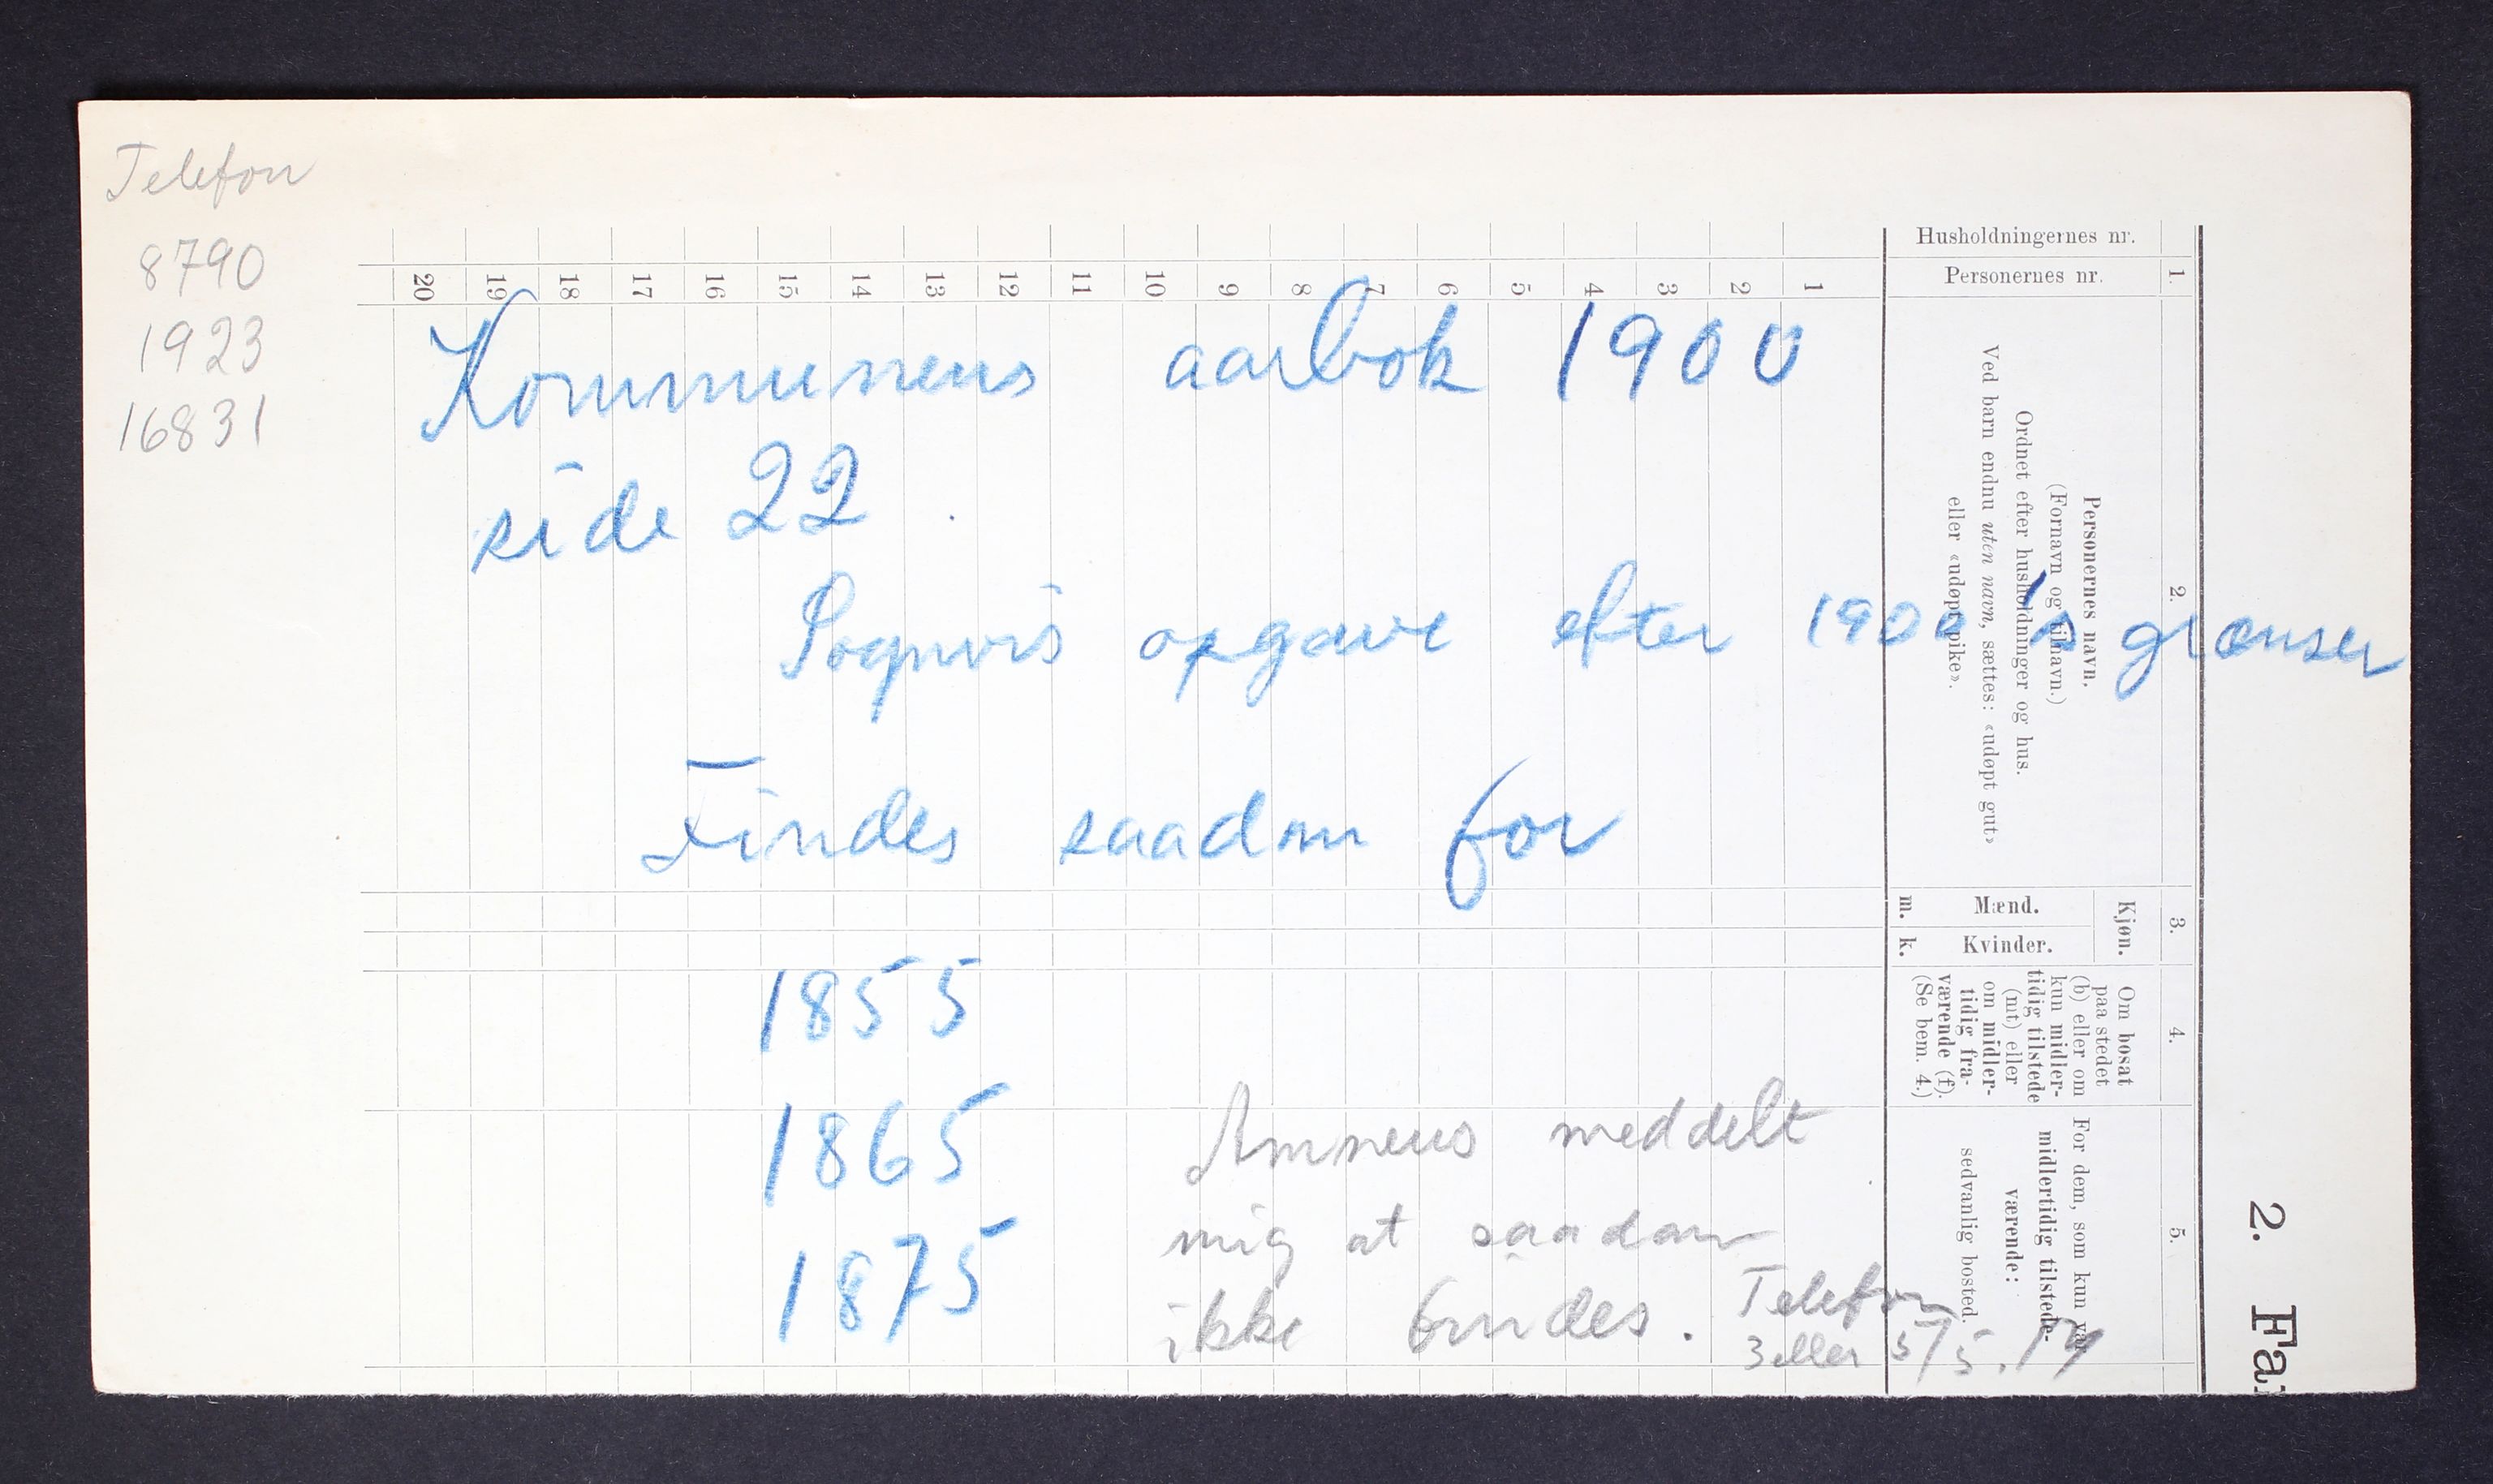 Telefon
8790
1923
16831
Kommunens aarbok 1900
side 22
Sognvis opgave efter 1900 's grænser
Findes saadan for
1855
1865
1875
Amneus meddelt
mig at saadan
ikke findes. Telefon
3 eller 5/5.17
Husholdningernes nr.
Personernes nr.
1.
20 19 18 17 16 15 14 13 12 11 10 9 8 7 6 5 4 3 2 1
2.
Personernes navn.
(Fornavn og tilnavn.)
Ordnet efter husholdninger og hus.
Ved barn endnu uten navn, sættes: «udøpt gut»
eller «udøpt pike».
3.
Kjøn.
Mænd.
m.
Kvinder.
k.
4.
Om bosat
paa stedet
(b) eller om
kun midler-
tidig tilstede
(mt) eller
om midler-
tidig fra-
værende (f).
(Se bem. 4.)
5.
For dem, som kun var
midlertidig tilstede-
værende:
sedvanlig bosted.
2. Fa